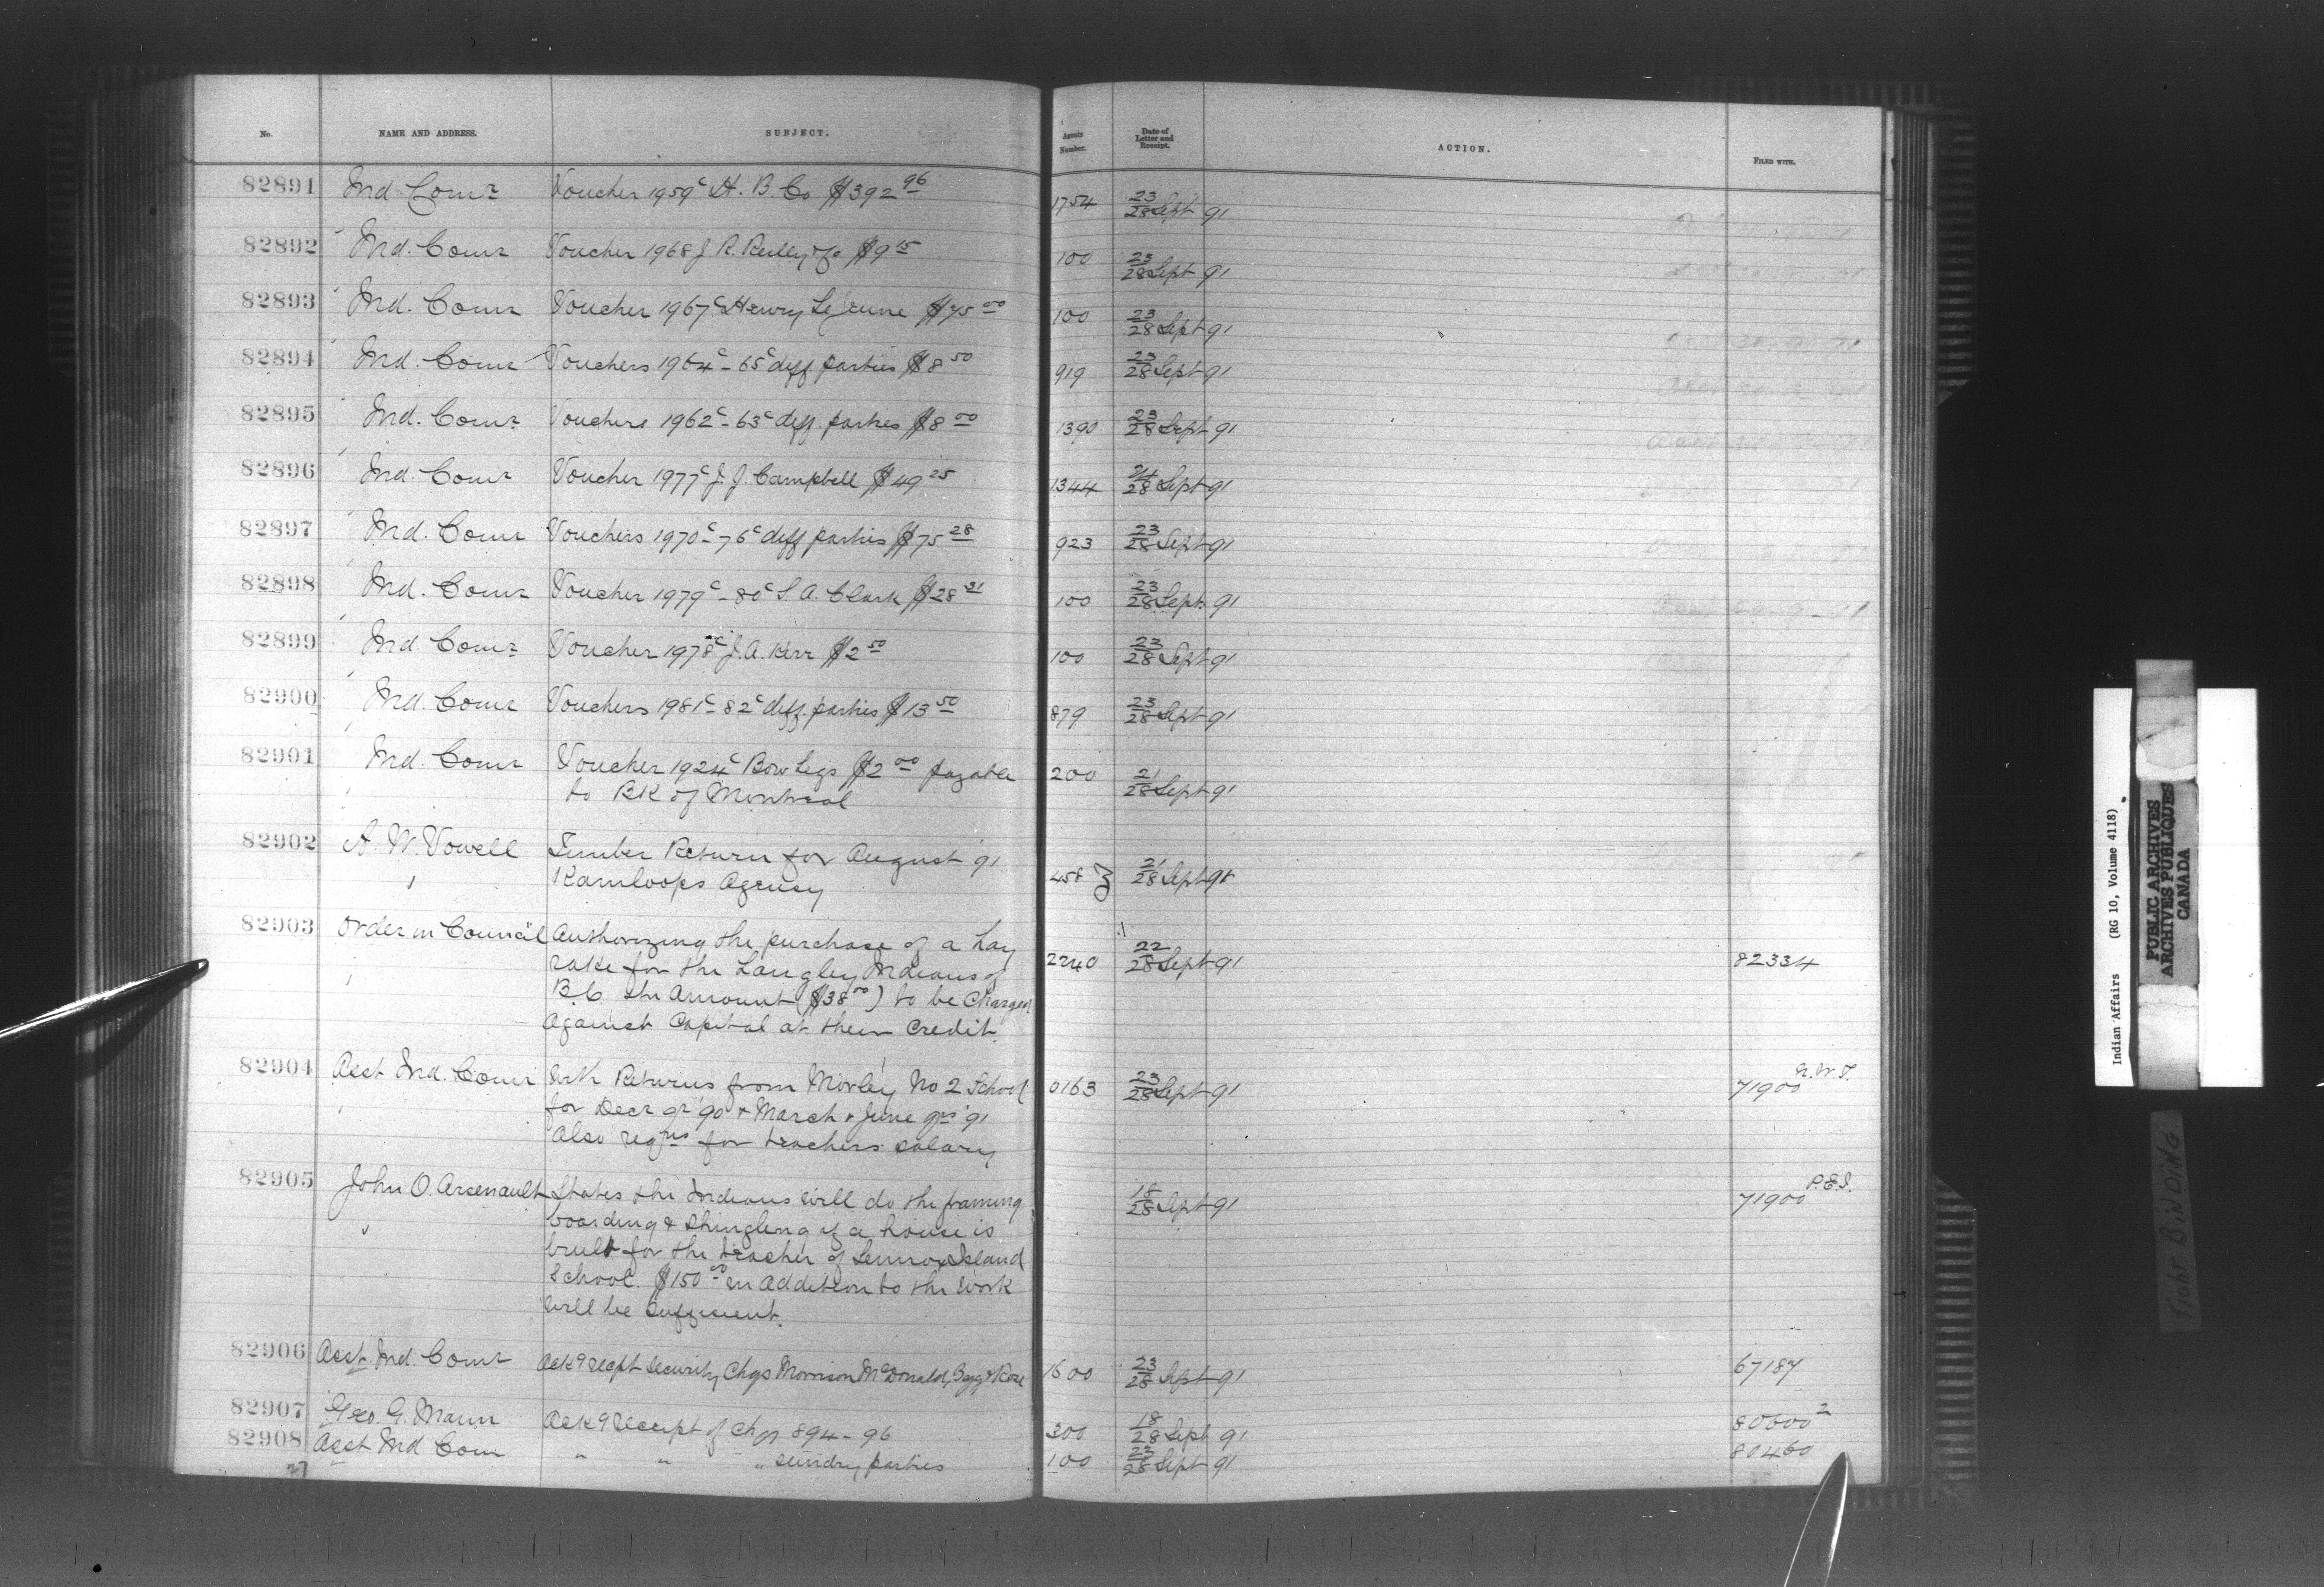 No. NAME AND ADDRESS. SUBJECT. Agents Number. Date of Letter and Receipt. ACTION. FILED WITH.
82891 Ind Comr Voucher 1959c H. B. Co $392 96 1754 23/28 Sept 91
82892 Ind. Comr Voucher 1968 J. R. Reilly & Co $9 15 100 23/28 Sept 91
82893 Ind. Comr Voucher 1967c Henry LeJeune $75 00 100 23/28 Sept 91
82894 Ind. Comr Vouchers 1964c - 65c diff parties $8 50 919 23/28 Sept 91
82895 Ind. Comr Vouchers 1962c - 63c diff. parties $8 00 1390 23/28 Sept 91
82896 Ind. Comr Voucher 1977c J. J. Campbell $49 25 1344 24/28 Sept 91
82897 Ind. Comr Vouchers 1970c - 76c diff parties $75 28 923 23/28 Sept 91
82898 Ind. Comr Voucher 1979c - 80c S. A. Clark $28 21 100 23/28 Sept. 91
82899 Ind. Comr Voucher 1978c J. A. Kerr $2 50 100 23/28 Sept 91
82900 Ind. Comr Vouchers 1981c - 82c diff. parties $13 50 879 23/28 Sept 91
82901 Ind. Comr Voucher 1924c Bow Legs $2 00 payable 200 21/28 Sept 91
to BK of Montreal
82902 A. W. Vowell Timber Return for August '91
Kamloops Agency 458 21/28 Sept 91
82903 Order in Council Authorizing the purchase of a hay
rake for the Langley Indians of 2240 22/28 Sept 91 82334
B.C. the amount ($38 00) to be charged
against Capital at their credit.
82904 Asst Ind. Comr With Returns from Morley No 2 School 0163 23/28 Sept 91 71900 N.W.T.
for Decr qr '90 & March & June qrs '91
Also reqns for teachers salary
82905 John O. Arsenault States the Indians will do the framing 18/28 Sept 91 71900 P.E.I.
boarding & shingling if a house is
built for the teacher of Lennox Island
School. $150 00 in addition to the work
will be sufficient.
82906 Asst Ind. Comr Ackg recpt security Chqs Morrison McDonald, Begg & Rose 1600 23/28 Sept 91 67187
82907 Geo. G. Mann Ackg receipt of Chqs 894 - 96 300 18/28 Sept 91 80600 2
82908 Asst Ind Com " " " sundry parties 100 23/28 Sept 91 80460
27
Indian Affairs (RG 10, Volume 4118)
PUBLIC ARCHIVES
ARCHIVES PUBLIQUES
CANADA
Tight BINDING